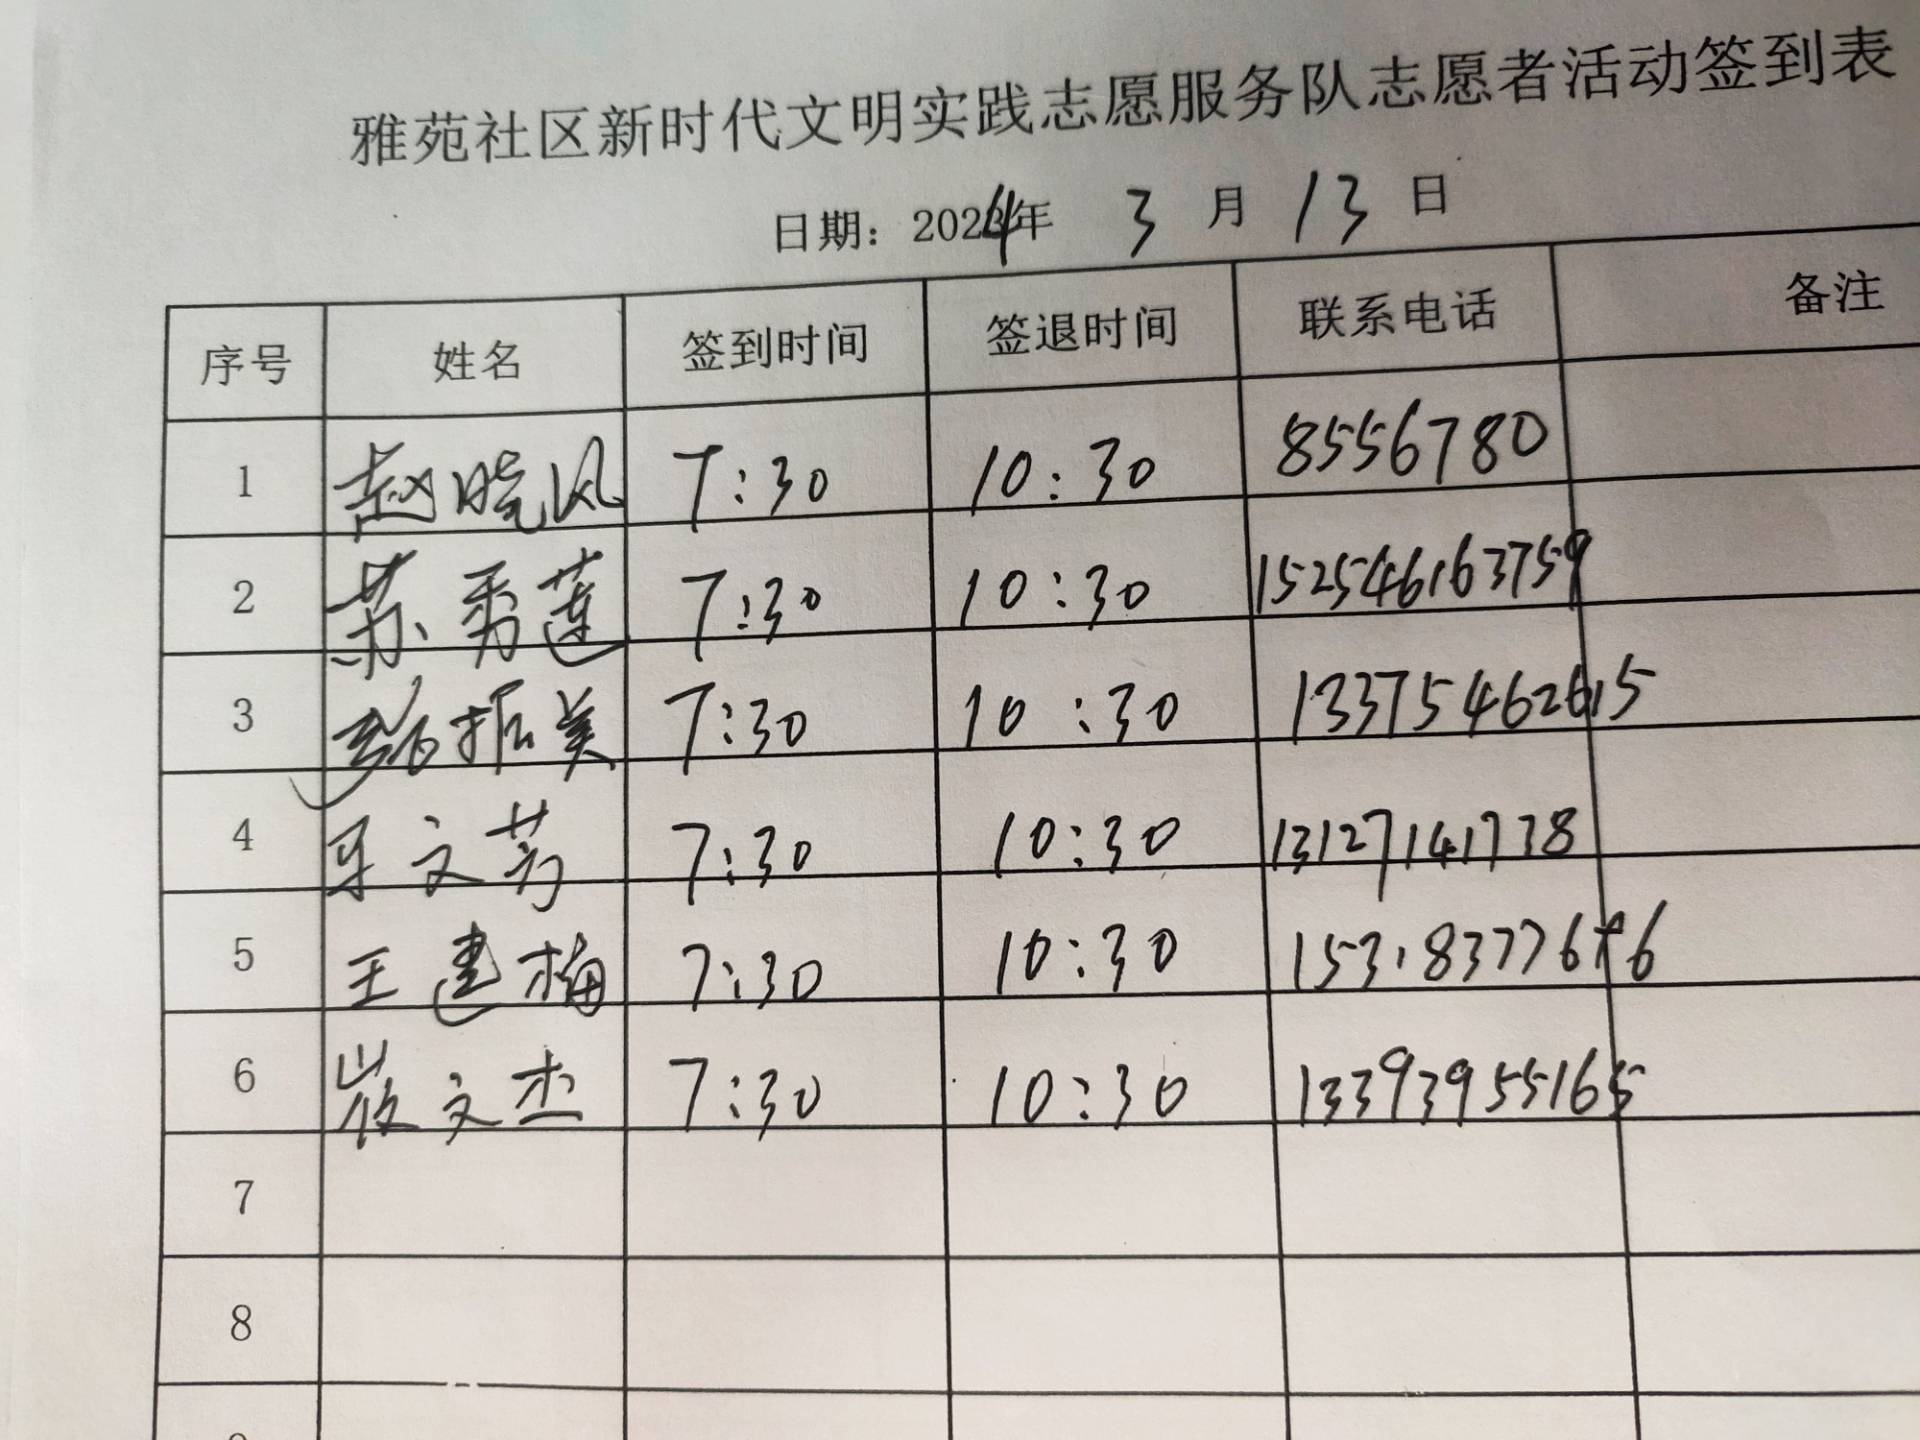 雅苑社区新时代文明实践志愿服务队志愿者活动签到表
日期：2024年 3 月 13 日
序号 姓名 签到时间 签退时间 联系电话 备注
1 赵晓风 7:30 10:30 8556780
2 苏秀莲 7:30 10:30 152546163759
3 振美 7:30 10:30 13375462615
4 牙文芳 7:30 10:30 13127141778
5 王建梅 7:30 10:30
6 文杰 7:30 10:30 13393955165
7
8